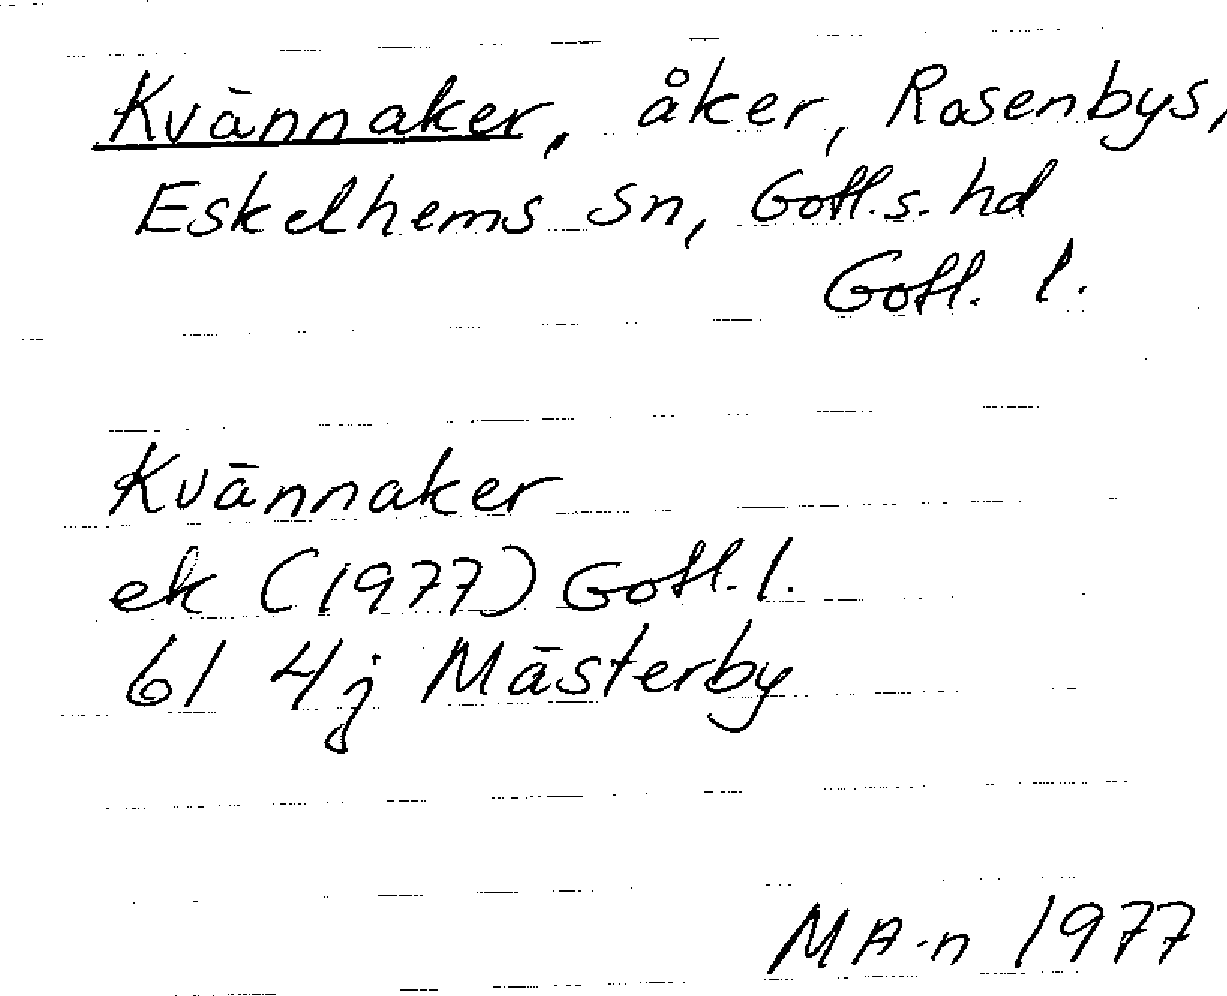 Kvännaker, åker, Rosenbys,
Eskelhems sn, Gotl. s. hd
Gotl. l.
Kvännaker
ek (1977) Gotl. l.
6I 4j Mästerby
MA-n 1977